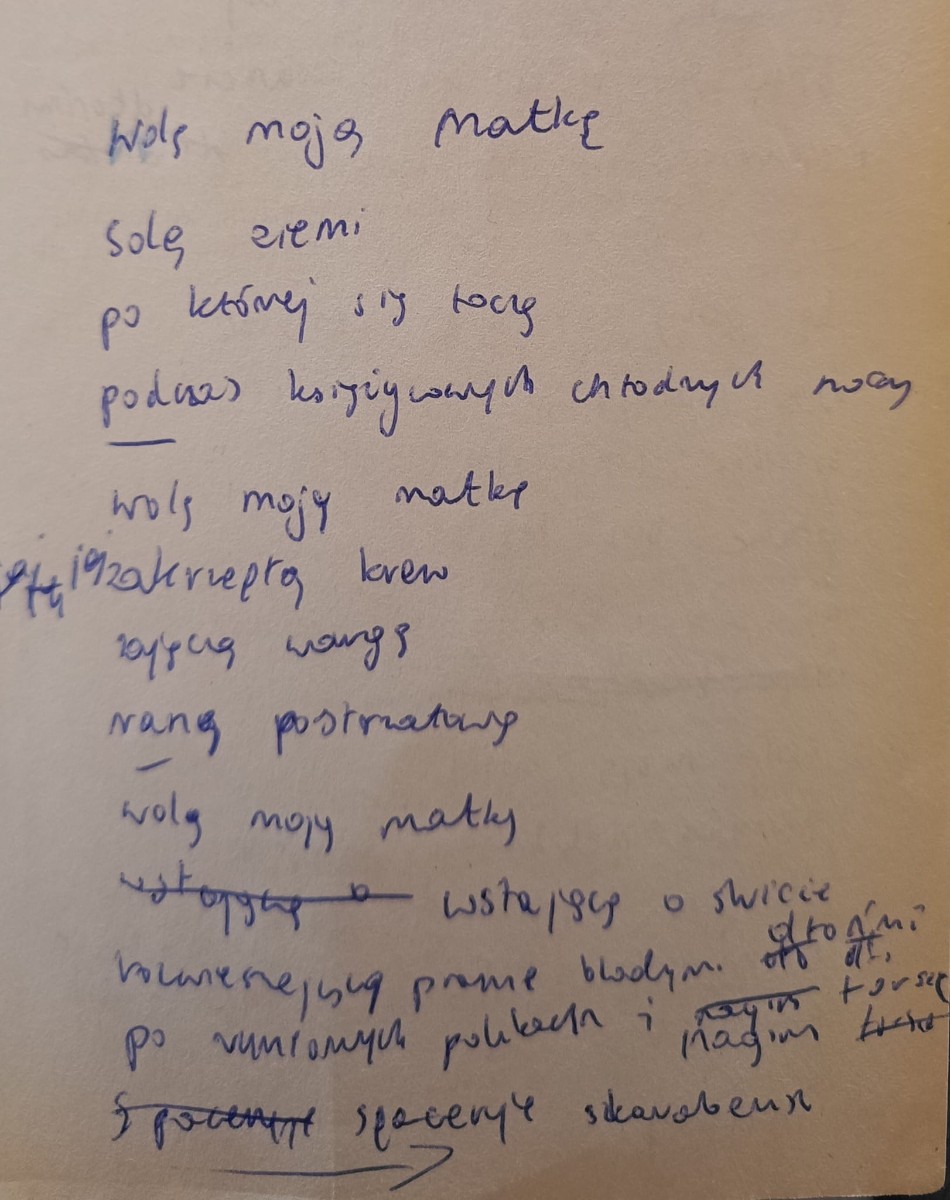 wolę moją matkę
solę ziemi
po której się toczę
podczas księżycowych chłodnych nocy
wolę moją matkę
zakrzepłą krew
zajęczą wargę
ranę postrzałową
wolę moją matkę
wstającą o wstającą o świcie
rozwieszającą pranie bladymi dłońmi
po rumianych policzkach i nagim torsie
spaceruje spaceruje skarabeusz